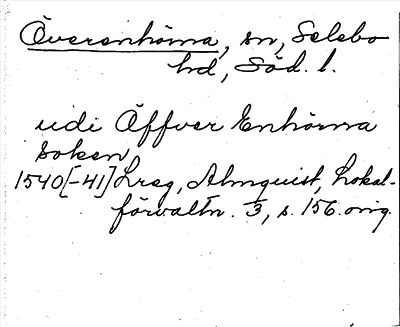 Överenhörna, sn, Selebo
hd, Söd. l.
udi Öffver Enhörna
soken,
1540[-41] Lreg, Almquist, Lokal-
förvaltn. 3, s. 156. orig.